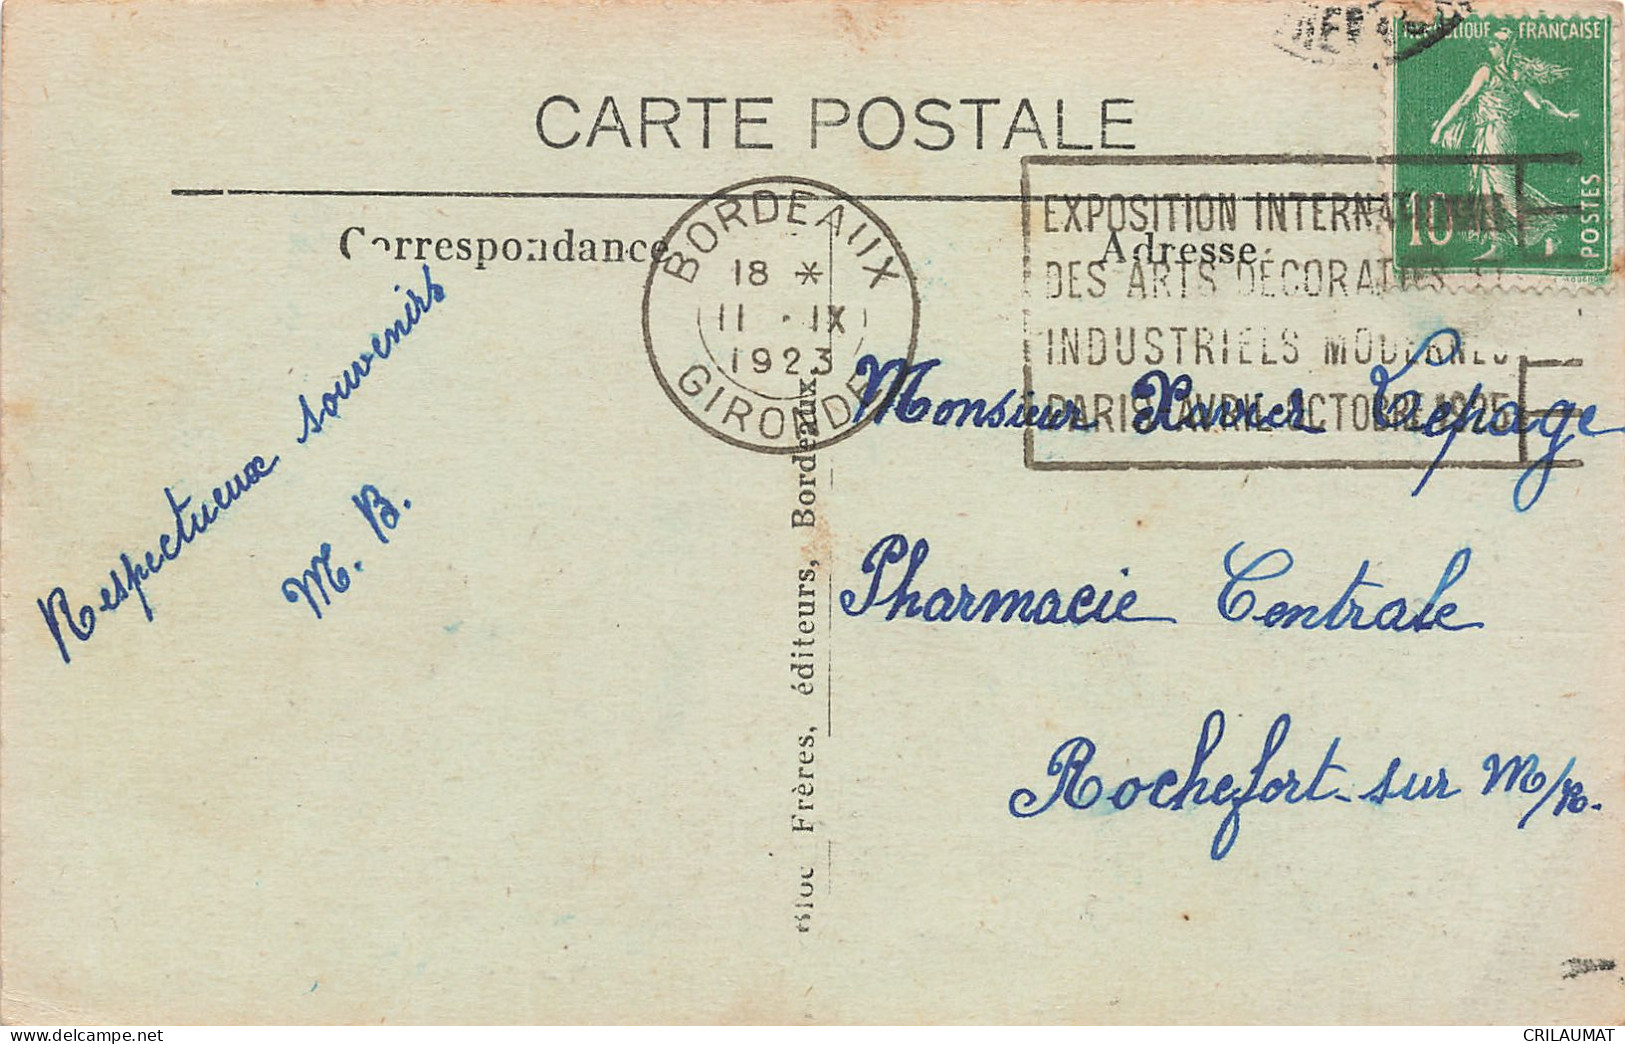 CARTE POSTALE
RÉPUBLIQUE FRANÇAISE
10
POSTES
BORDEAUX
18 *
11 · IX
1923
GIRONDE
EXPOSITION INTERNATIONALE
DES ARTS DÉCORATIFS ET
INDUSTRIELS MODERNES
PARIS-AVRIL-OCTOBRE 1925
Correspondance
Adresse
Respectueux souvenirs
M. B.
Bloc Frères, éditeurs, Bordeaux.
Monsieur Xavier Lepage
Pharmacie Centrale
Rochefort-sur M/R.
CRILAUMAT
www.delcampe.net